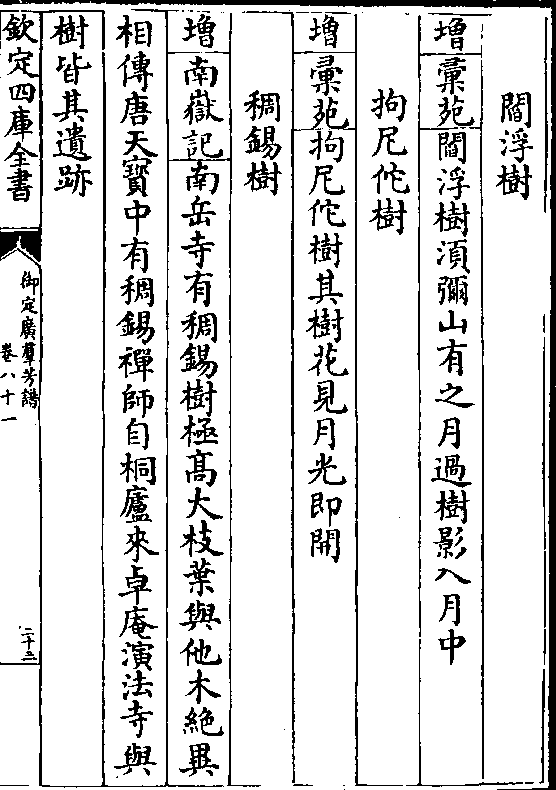 閻浮樹
增彚苑閻浮樹湏彌山有之月過樹影入月中
拘尼佗樹
增彚苑拘尼佗樹其樹花見月光即開
稠錫樹
增南嶽記南岳寺有稠錫樹極髙大枝葉與他木絶異
相傳唐天寳中有稠錫禪師自桐廬來卓庵演法寺與
樹皆其遺跡
欽定四庫全書
御定廣羣芳譜
卷八十一
二十二